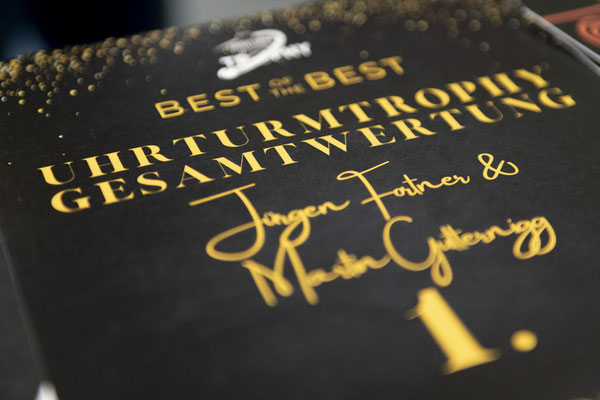 BEST OF THE BEST
UHRTURMTROPHY
GESAMTWERTUNG
Jürgen Fortner &
Martin Gutternigg
1.